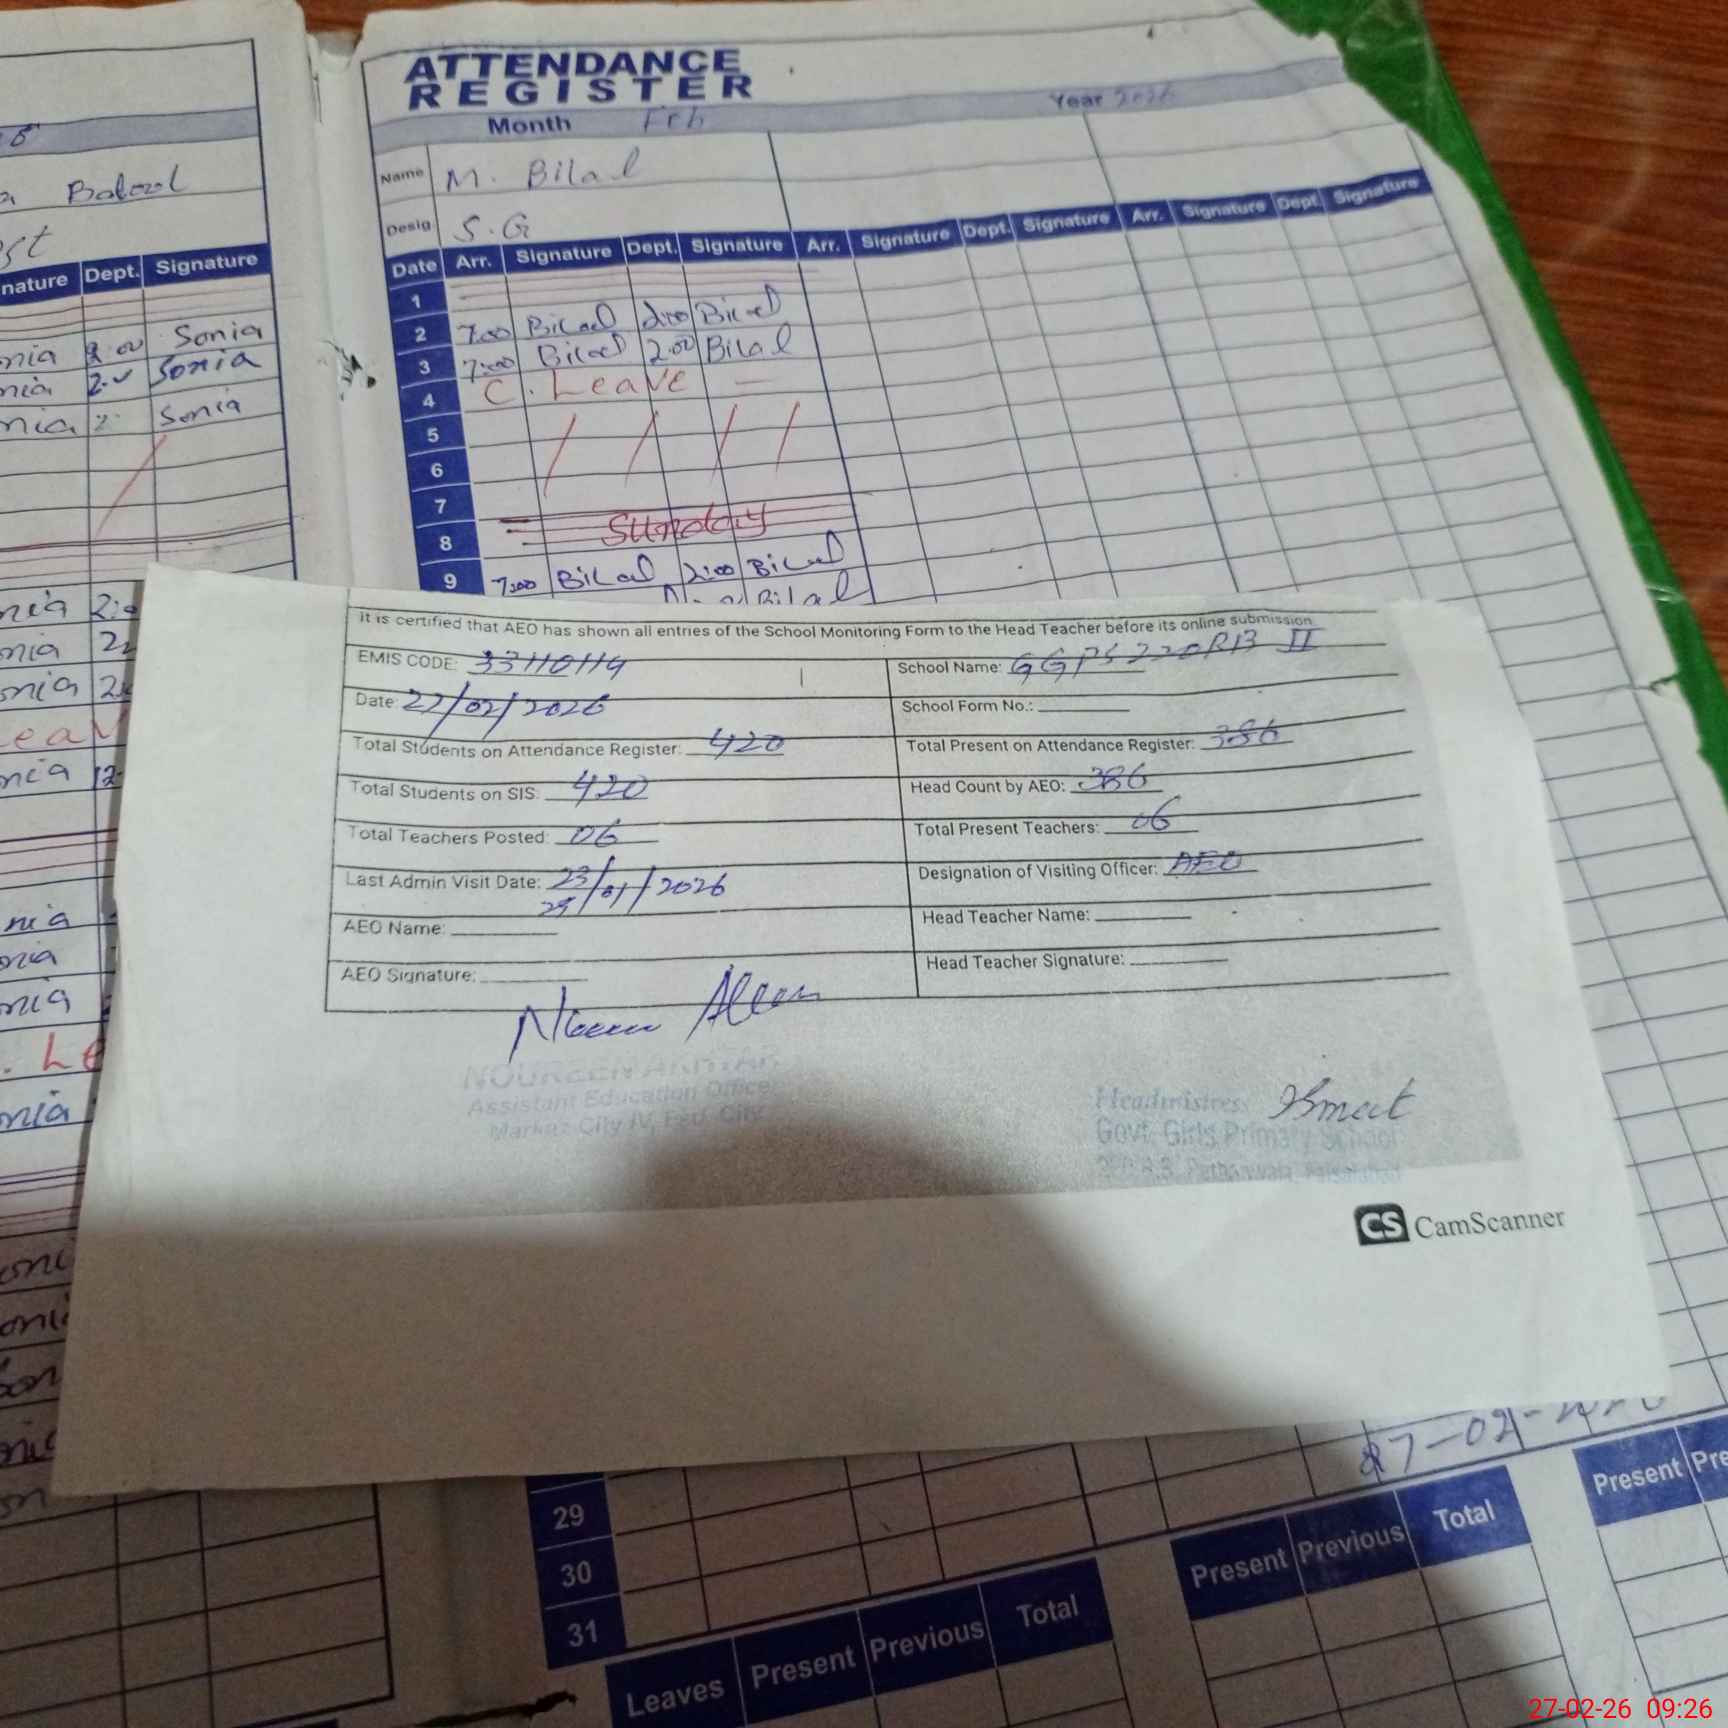 ATTENDANCE
REGISTER
Month Feb
Year 2026
Name M. Bilal
Desig. S.G
Date Arr. Signature Dept. Signature Arr. Signature Dept. Signature Arr. Signature Dept. Signature
1
2 7:00 Bilal 2:00 Bilal
3 7:00 Bilal 2:00 Bilal
4 C. Leave —
5
6
7
8 Sunday
9 7:00 Bilal 2:00 Bilal
Bilal
Batool
nature Dept. Signature
nia 2.00 Sonia
nia 2.0 Sonia
nia 2: Sonia
nia 2:0
nia
onia
nia 12
nia
nia
nia
. Le
nia
It is certified that AEO has shown all entries of the School Monitoring Form to the Head Teacher before its online submission.
EMIS CODE: 33110119 School Name: GGPS 220RB II
Date: 27/02/2026 School Form No.:
Total Students on Attendance Register: 420 Total Present on Attendance Register: 386
Total Students on SIS: 420 Head Count by AEO: 386
Total Teachers Posted: 06 Total Present Teachers: 06
Last Admin Visit Date: 23/01/2026 Designation of Visiting Officer: AEO
29
AEO Name: Head Teacher Name:
AEO Signature: Head Teacher Signature:
Assistant Education Officer
Markaz City IV, Fsd. City
Headmistress
Govt. Girls Primary School
CS CamScanner
27-02-2026
29
30
31
Leaves Present Previous Total
Present Previous Total
Present Pre
27-02-26 09:26